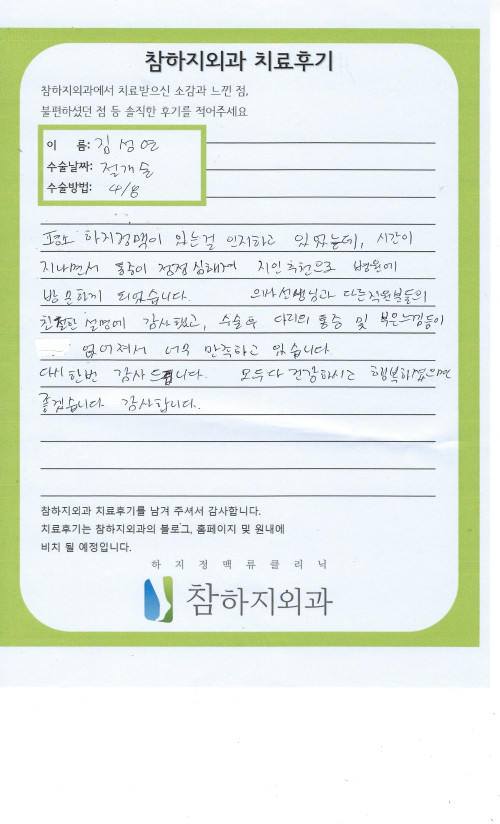 참하지외과 치료후기
참하지외과에서 치료받으신 소감과 느낀 점,
불편하셨던 점 등 솔직한 후기를 적어주세요
이 름: 김성연
수술날짜: 절개술
수술방법: 4/8
평소 하지정맥이 있는걸 인지하고 있었는데, 시간이
지나면서 통증이 점점 심해져 지인 추천으로 병원에
방문하게 되었습니다. 의사선생님과 다른직원분들의
친절한 설명에 감사했고, 수술후 다리의 통증 및 붓은느낌등이
없어져서 너무 만족하고 있습니다
다시한번 감사드립니다. 모두다 건강하시고 행복하셨으면
좋겠습니다 감사합니다.
참하지외과 치료후기를 남겨 주셔서 감사합니다.
치료후기는 참하지외과의 블로그, 홈페이지 및 원내에
비치 될 예정입니다.
하지정맥류클리닉
참하지외과